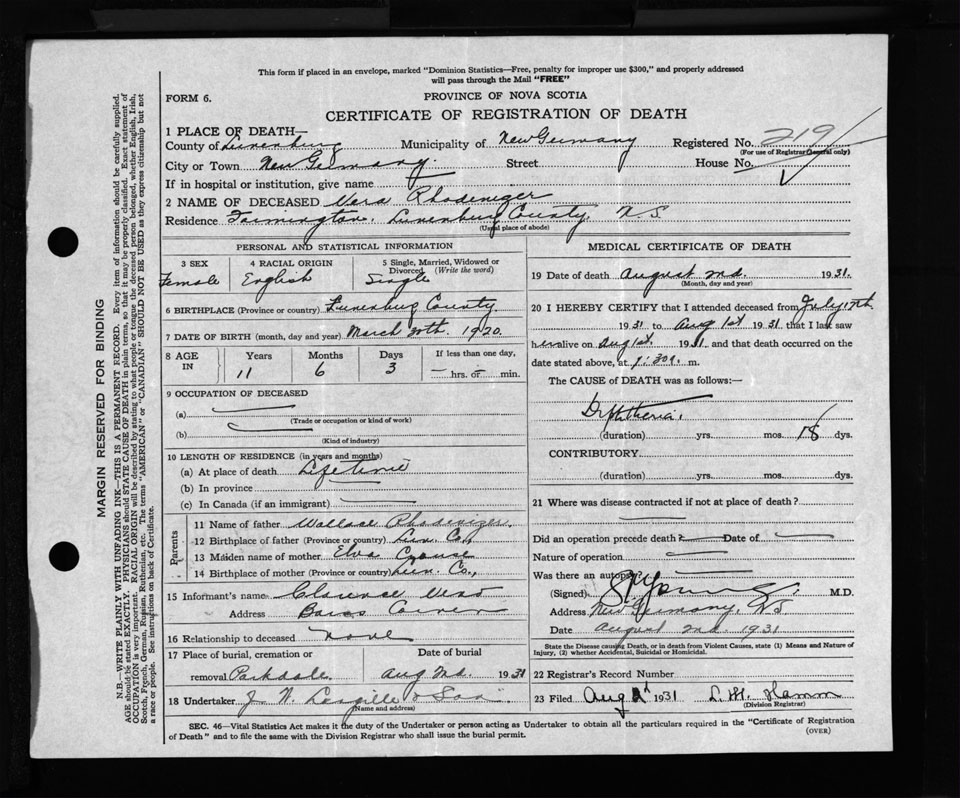 This form if placed in an envelope, marked "Dominion Statistics—Free, penalty for improper use $300," and properly addressed
will pass through the Mail "FREE"
FORM 6.
PROVINCE OF NOVA SCOTIA
CERTIFICATE OF REGISTRATION OF DEATH
1 PLACE OF DEATH—
County of Lunenburg Municipality of New Germany Registered No. 219
(For use of Registrar General only)
City or Town New Germany Street House No.
If in hospital or institution, give name
2 NAME OF DECEASED Vera Rhodeniger
Residence Farmington, Lunenburg County, N S
(Usual place of abode)
PERSONAL AND STATISTICAL INFORMATION
3 SEX 4 RACIAL ORIGIN 5 Single, Married, Widowed or
Divorced (Write the word)
Female English Single
6 BIRTHPLACE (Province or country) Lunenburg County
7 DATE OF BIRTH (month, day and year) March 1920.
8 AGE IN Years Months Days If less than one day,
11 6 3 — hrs. or — min.
9 OCCUPATION OF DECEASED
(a)
(Trade or occupation or kind of work)
(b)
(Kind of industry)
10 LENGTH OF RESIDENCE (in years and months)
(a) At place of death Lifetime
(b) In province
(c) In Canada (if an immigrant)
Parents
11 Name of father Wallace Rhodeniger
12 Birthplace of father (Province or country) Lun. Co.,
13 Maiden name of mother Elva Crouse
14 Birthplace of mother (Province or country) Lun. Co.,
15 Informant's name Clarence
Address
16 Relationship to deceased none
17 Place of burial, cremation or Date of burial
removal Parkdale Aug 2nd. 1931
18 Undertaker J. N. & Son
(Name and address)
MEDICAL CERTIFICATE OF DEATH
19 Date of death August 2nd. 1931.
(Month, day and year)
20 I HEREBY CERTIFY that I attended deceased from July 17th.
1931 to Aug 1st 1931 that I last saw
her alive on Aug 1st. 1931 and that death occurred on the
date stated above, at 1:30 a. m.
The CAUSE of DEATH was as follows:—
Diphtheria.
(duration) yrs. mos. 15 dys.
CONTRIBUTORY
(duration) yrs. mos. dys.
21 Where was disease contracted if not at place of death?
Did an operation precede death? Date of
Nature of operation
Was there an autopsy?
(Signed) Young M.D.
Address New Germany, N S
Date August 2nd. 1931
State the Disease causing Death, or in death from Violent Causes, state (1) Means and Nature of
Injury, (2) whether Accidental, Suicidal or Homicidal.
22 Registrar's Record Number
23 Filed Aug 2 1931 L. M. Hamm
(Division Registrar)
SEC. 46—Vital Statistics Act makes it the duty of the Undertaker or person acting as Undertaker to obtain all the particulars required in the "Certificate of Registration
of Death" and to file the same with the Division Registrar who shall issue the burial permit.
(OVER)
MARGIN RESERVED FOR BINDING
N.B.—WRITE PLAINLY WITH UNFADING INK—THIS IS A PERMANENT RECORD. Every item of information should be carefully supplied.
AGE should be stated EXACTLY. PHYSICIANS should STATE CAUSE OF DEATH in plain terms, so that it may be properly classified. Exact statement of
OCCUPATION is very important. RACIAL ORIGIN will be described by stating to what people or tongue the deceased person belonged, whether English, Irish,
Scotch, French, German, Russian, Ruthenian, etc. The terms "AMERICAN" or "CANADIAN" SHOULD NOT BE USED as they express citizenship but not
a race or people. See instructions on back of Certificate.